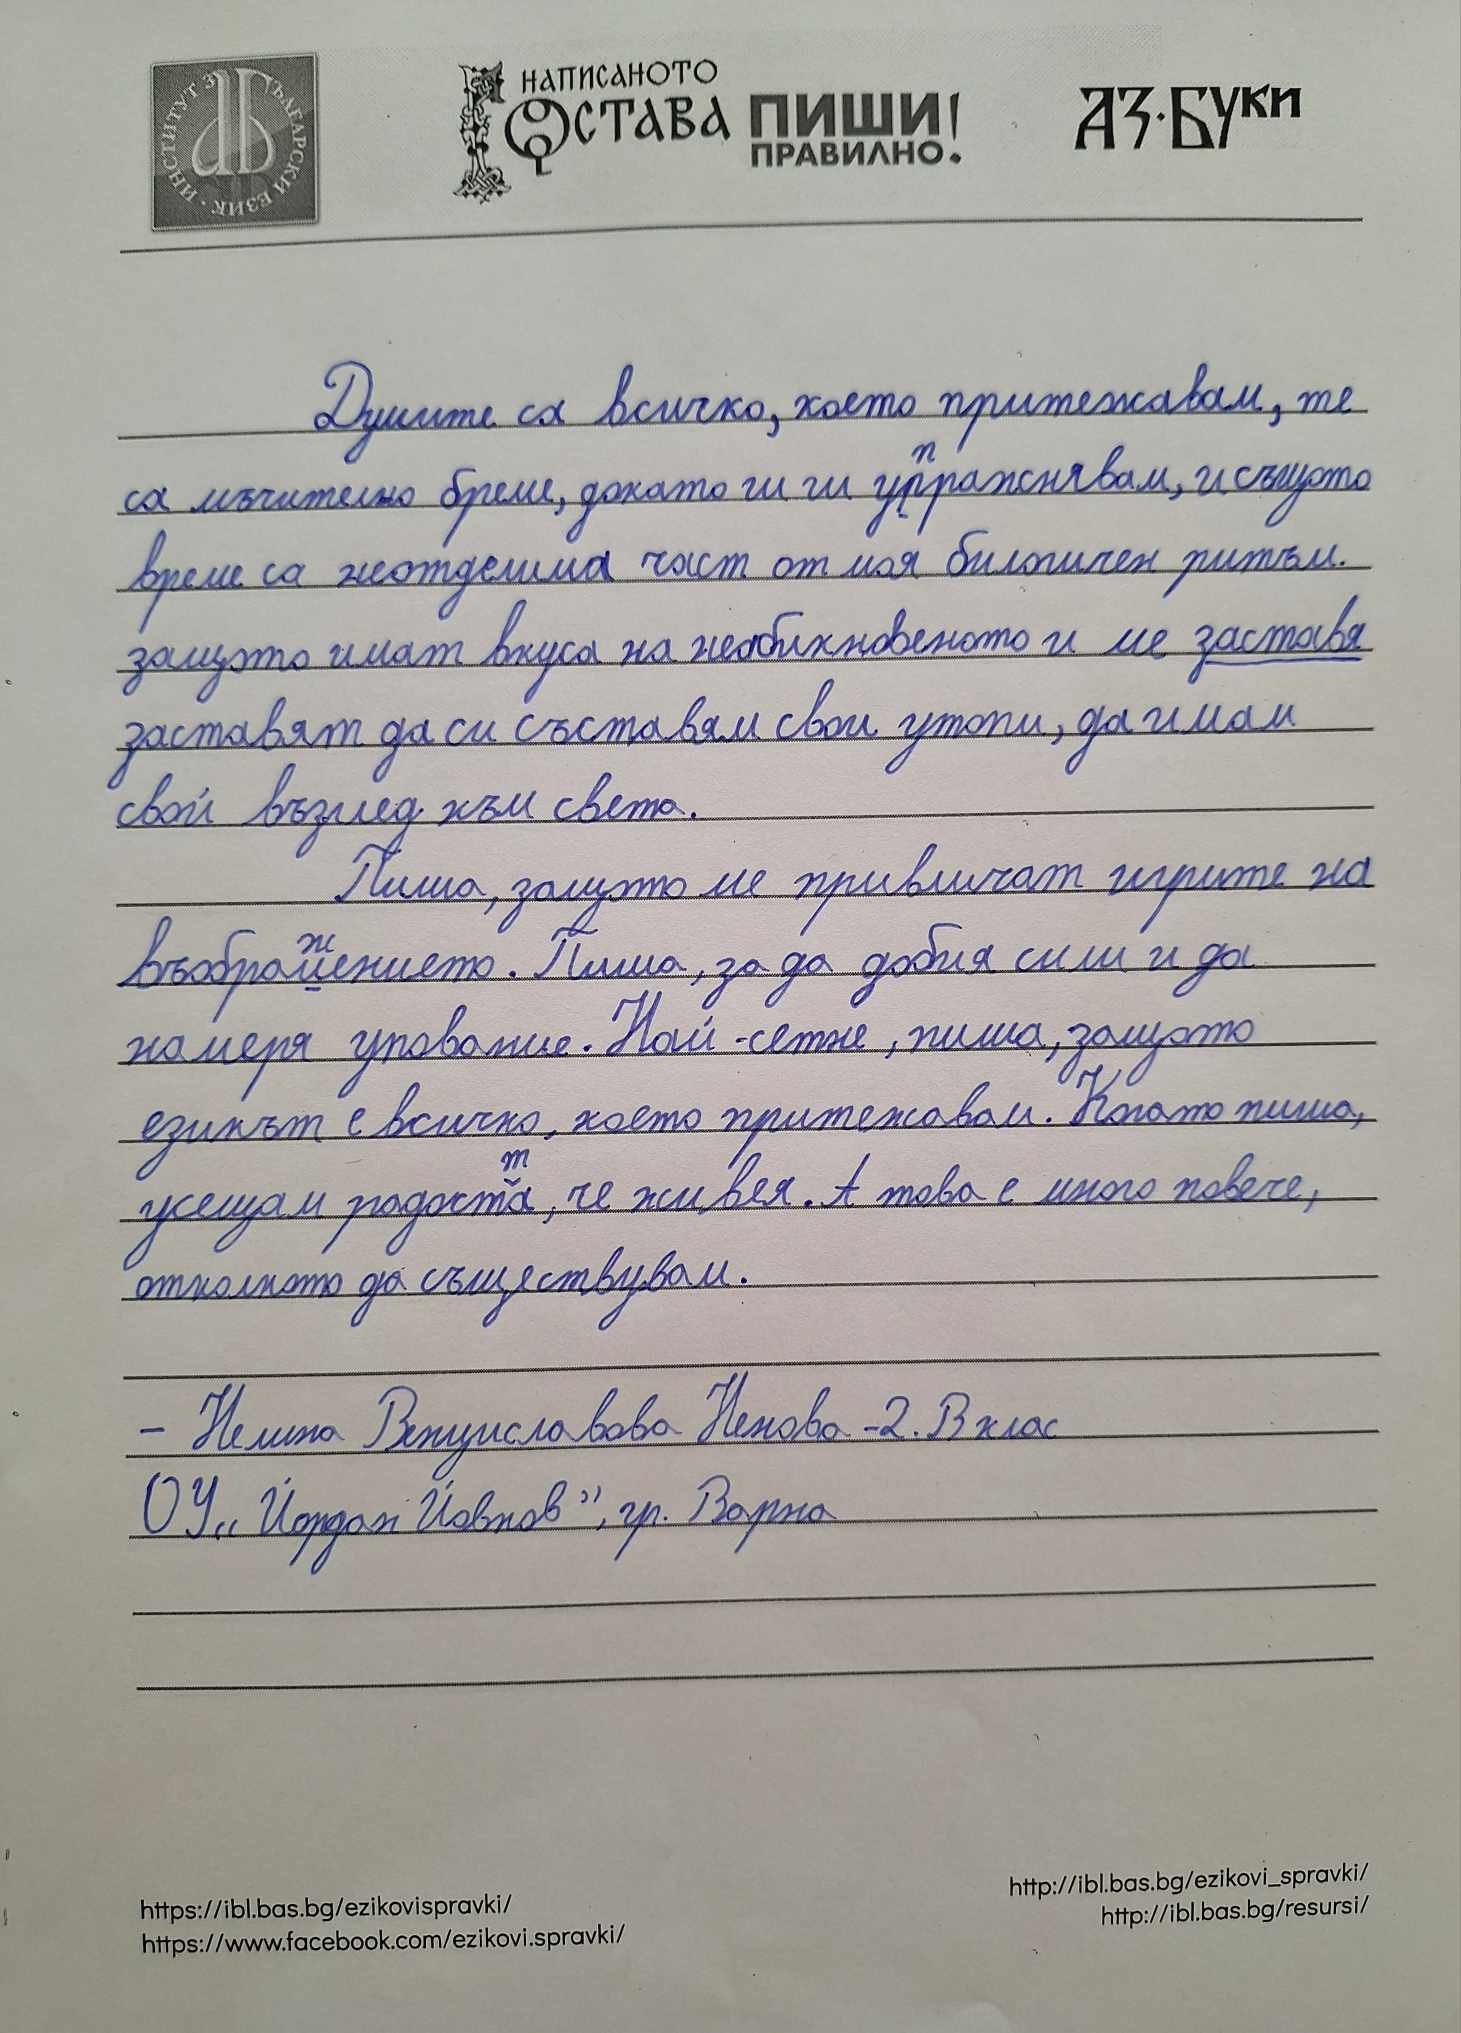 ИНСТИТУТ ЗА БЪЛГАРСКИ ЕЗИК
НАПИСАНОТО
ОСТАВА ПИШИ
ПРАВИЛНО!
АЗ·БУКИ
Думите са всичко, което притежавам, те
са мъчително бреме, докато ги ги упражнявам, и същото
време са неотделима част от моя билогичен ритъм.
защото имат вкуса на необикновеното и ме заставя
заставят да си съставям свои утопи, да имам
свой възглед към света.
Пиша, защото ме привличат игрите на
въображението. Пиша, за да добия сили и да
намеря упование. Най-сетне, пиша, защото
езикът е всичко, което притежавам. Когато пиша,
усещам радостта, че живея. А това е много повече,
отколкото да съществувам.
- Нелина Венциславова Ненова -2. В клас
ОУ „Йордан Йовков”, гр. Варна
https://ibl.bas.bg/ezikovispravki/
https://www.facebook.com/ezikovi.spravki/
http://ibl.bas.bg/ezikovi_spravki/
http://ibl.bas.bg/resursi/